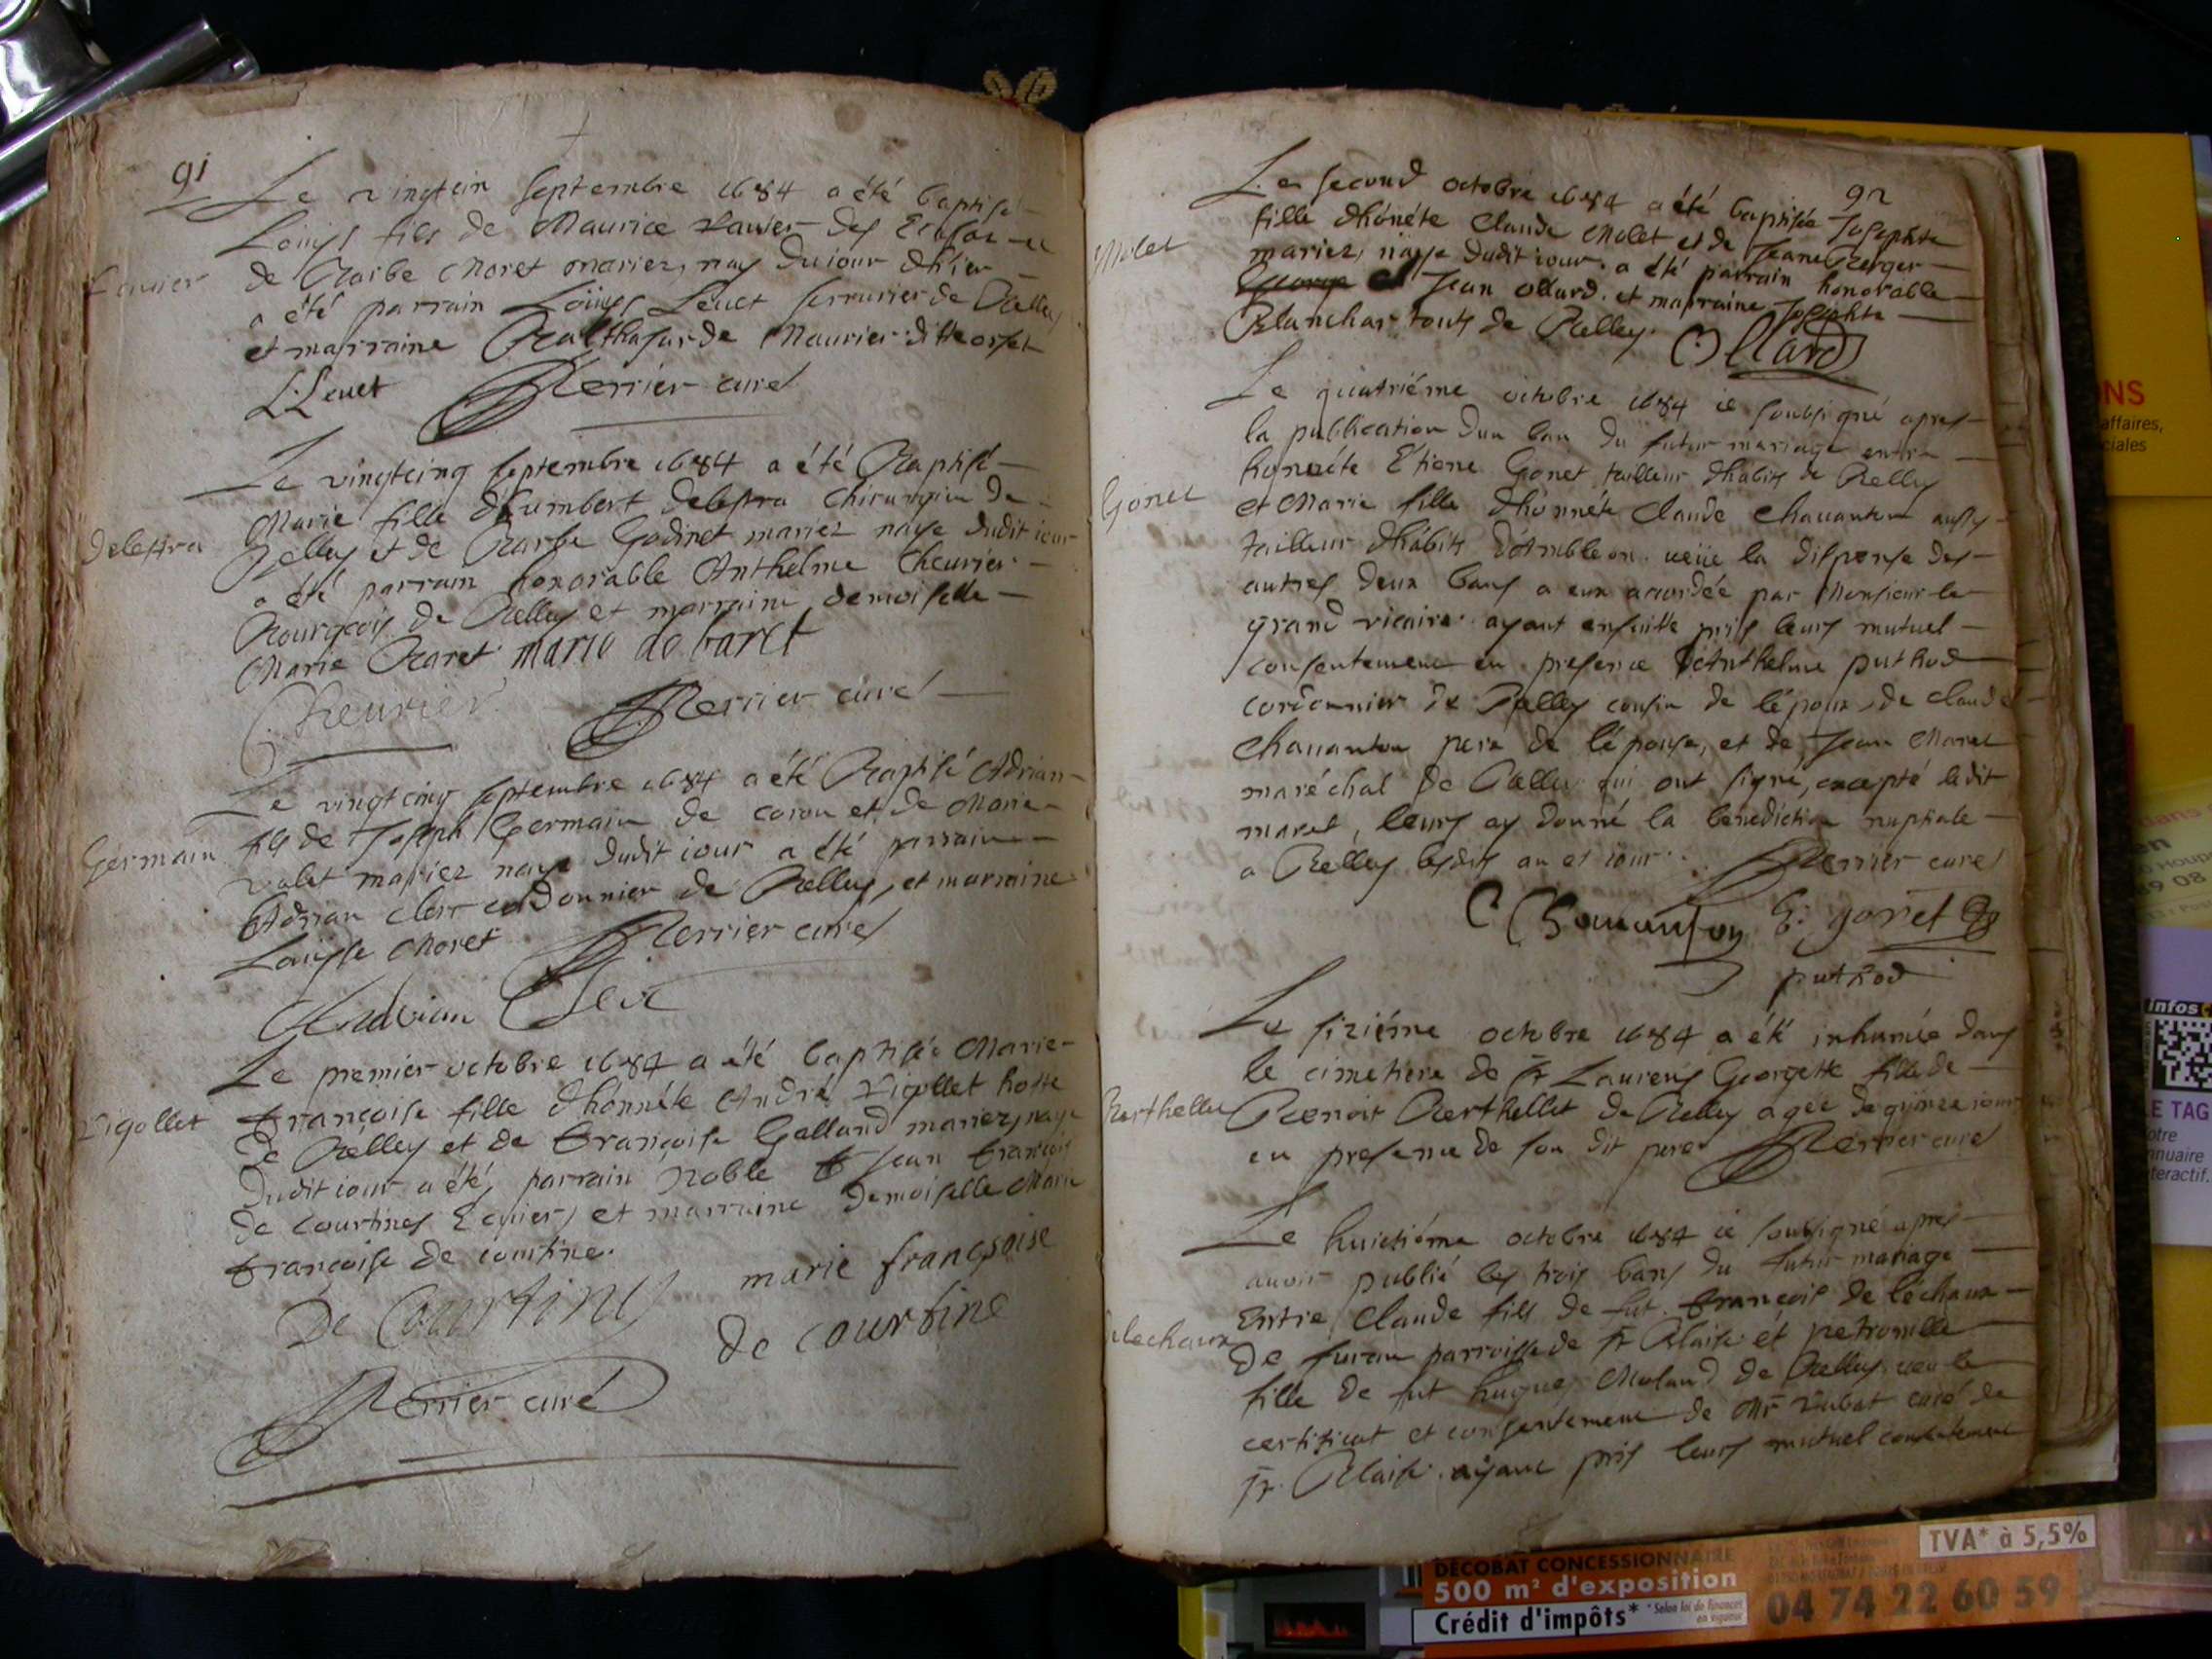 91
Le vingtcin septembre 1684 a été baptisé
Loüys fils de Maurice Lauier des Ecasar et
Lauier
de Barbe Moret mariez, nay du iour d'hier
a été parrain Loüys Leuet serrurier de Belley
et marraine Balthasarde Maurier ditte orset
L. Leuet Perrier curé
Le vingtcinq septembre 1684 a été Baptisé
Marie fille d'humbert delestra Chirurgien de
Delestra
Belley et de Barbe Godinet mariez naye dudit iour
a été parrain honorable Anthelme Cheurier
Bourgeois de Belley et marraine demoiselle
Marie Baret marie de baret
Cheurier Perrier curé
Le vingtcinq septembre 1684 a été Baptisé Adrian
fils de Joseph Germain de coron et de Marie
Germain
Valet mariez naye dudit iour a été parrain
Adrian clerc cordonnier de Belley, et marraine
Loüyse Moret Perrier curé
Le premier octobre 1684 a été baptisée Marie
françoise fille d'honnéte André Vigollet hoste
Vigollet
de Belley et de françoise Galland mariez, naye
dudit iour a été, parrain Noble Jean françois
de Courtines Ecuier, et marraine demoiselle Marie
françoise de courtine.
De Courtines marie françoise
de courtine
Perrier curé
92
Le second octobre 1684 a été baptisée Josephte
fille d'honéte Claude Molet et de Jeane Berger
Molet
mariez, naye dudit iour. a été parrain honorable
Jean ollard. et marraine Josephte
Blanchar touts de Belley. Ollard
Le quatriéme octobre 1684 ie soubsigné apres
la publication d'un ban du futur mariage entre
honnéte Étiene Gonet tailleur d'habits de Belley
Gonet
et Marie fille d'honnéte Claude Chauanton aussy
tailleur d'habits d'Ambleon. veüe la dispense des
autres deux bans a eux accordée par Monsieur le
grand vicaire. ayant ensuitte pris leurs mutuel
consentement en presence d'Anthelme puthod
cordonnier de Belley cousin de l'époux, de claude
Chauanton pere de l'épouse, et de Jean Maret
maréchal de Belley qui ont signé, excepté ledit
maret, leurs ay donné la benediction nuptiale
a Belley lesdits an et iour. Perrier curé
C Chauanton E: gonet
puthod
Le siziéme octobre 1684 a été inhumée dans
le cimetiere de st Laurens Georgette fille de
Benoit Berthellet de Belley agée de quinze iours
Berthellet
en presence de son dit pere Perrier curé
Le huictiéme octobre 1684 ie soubsigné apres
auoir publié les trois bans du futur mariage
Entre Claude fils de fut françois de léchaux
delechaux
de furan parroisse de st Blaise et petronille
fille de fut hugue Moland de Belley. veu le
certificat et consentement de Mr Dubat curé de
st. Blaise. ayant pris leurs mutuel consentement
ONS
affaires,
ciales
Infos
LE TAG
DÉCOBAT CONCESSIONNAIRE
500 m² d'exposition
Crédit d'impôts* *Selon loi de finances
en vigueur
TVA* à 5,5%
04 74 22 60 59